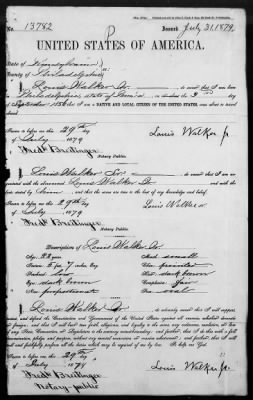 No. 13742 Issued July 31, 1879
UNITED STATES OF AMERICA.
State of Pennsylvania
County of Philadelphia
I, Louis Walker Jr. do swear that I was born
in Philadelphia, State of Penn'a on the 3rd day
of September 1856 that I am a NATIVE AND LOYAL CITIZEN OF THE UNITED STATES, and about to travel
abroad.
Sworn to before me this 29th day
of July 1879 Louis Walker Jr.
Fredk Breitinger
Notary Public.
I, Louis Walker Sr. do swear that I am
acquainted with the above-named Louis Walker Jr.
and that the facts are true to the best of my knowledge and belief.
Sworn to before me this 29th day Louis Walker
of July 1879
Fredk Breitinger
Notary Public.
Description of Louis Walker Jr.
Age: 22 years Mouth: small
Stature: 5 feet 7 inches, Eng. Chin: pointed
Forehead: low Hair: dark brown
Eyes: dark brown Complexion: fair
Nose: proportionate Face: oval
I, Louis Walker Jr. do solemnly swear that I will support,
protect, and defend the Constitution and Government of the United States against all enemies, whether domestic
or foreign; and that I will bear true faith, allegiance, and loyalty to the same, any ordinance, resolution, or law
of any State, Convention, or Legislature to the contrary notwithstanding; and further, that I do this with a full
determination, pledge, and purpose, without any mental reservation or evasion whatsoever; and further, that I will
well and faithfully perform all the duties which may be required of me by law. So help me God.
Sworn to before me this 29th day
of July 1879 Louis Walker Jr.
Fredk Breitinger
Notary public